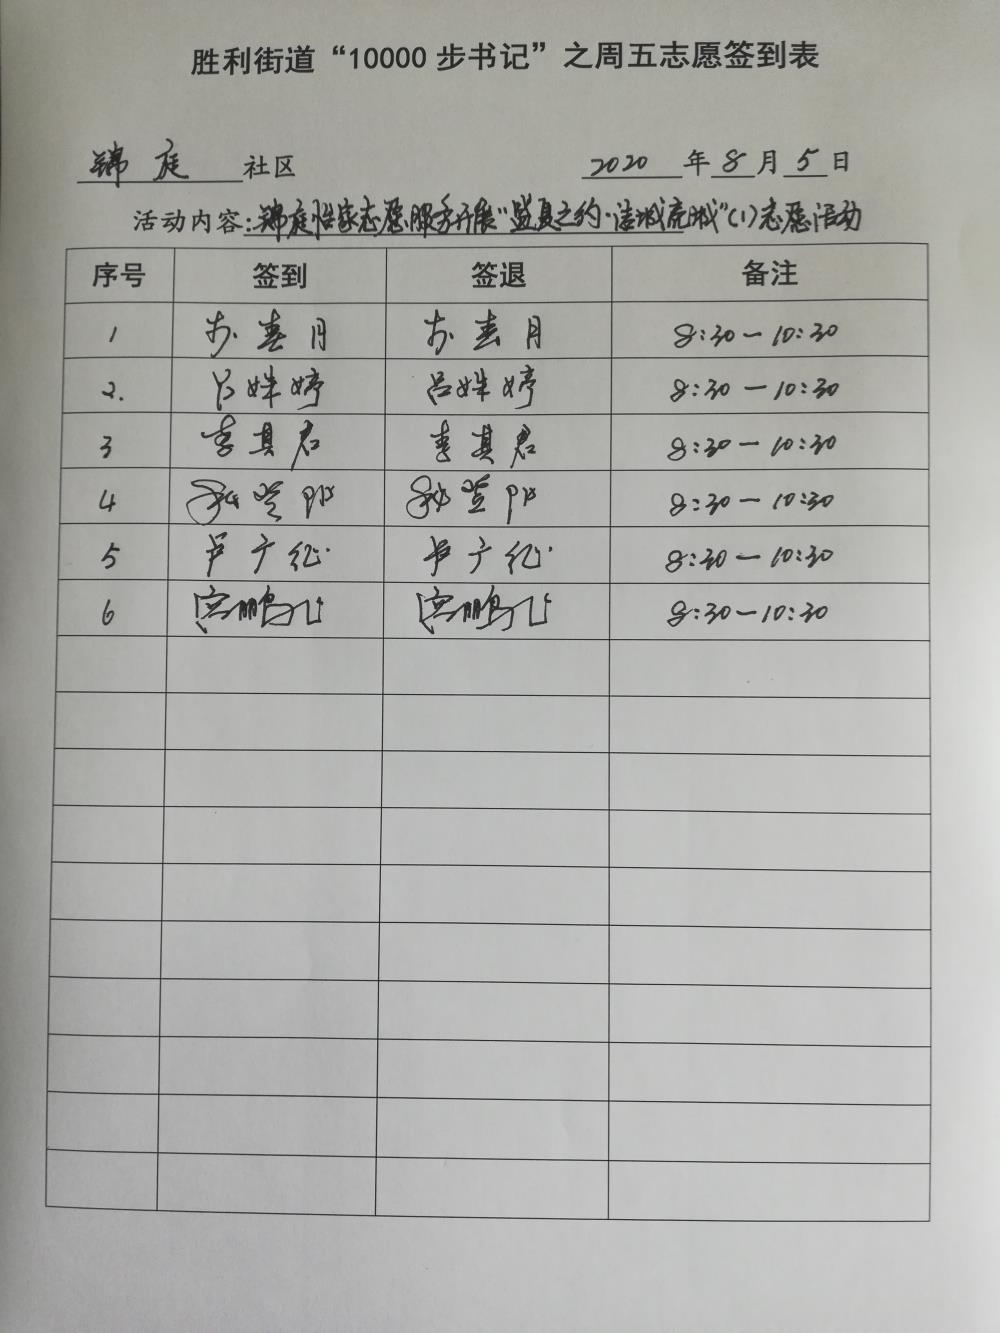 胜利街道“10000步书记”之周五志愿签到表
锦庭 社区 2020 年 8 月 5 日
活动内容:锦庭怡家志愿服务开展“盛夏之约·清城亮城”(1)志愿活动
序号 签到 签退 备注
1 春月 春月 8:30—10:30
2. 吕姝婷 吕姝婷 8:30—10:30
3 李其君 李其君 8:30—10:30
4 8:30—10:30
5 卢广红 卢广红 8:30—10:30
6 宫鹏飞 宫鹏飞 8:30—10:30